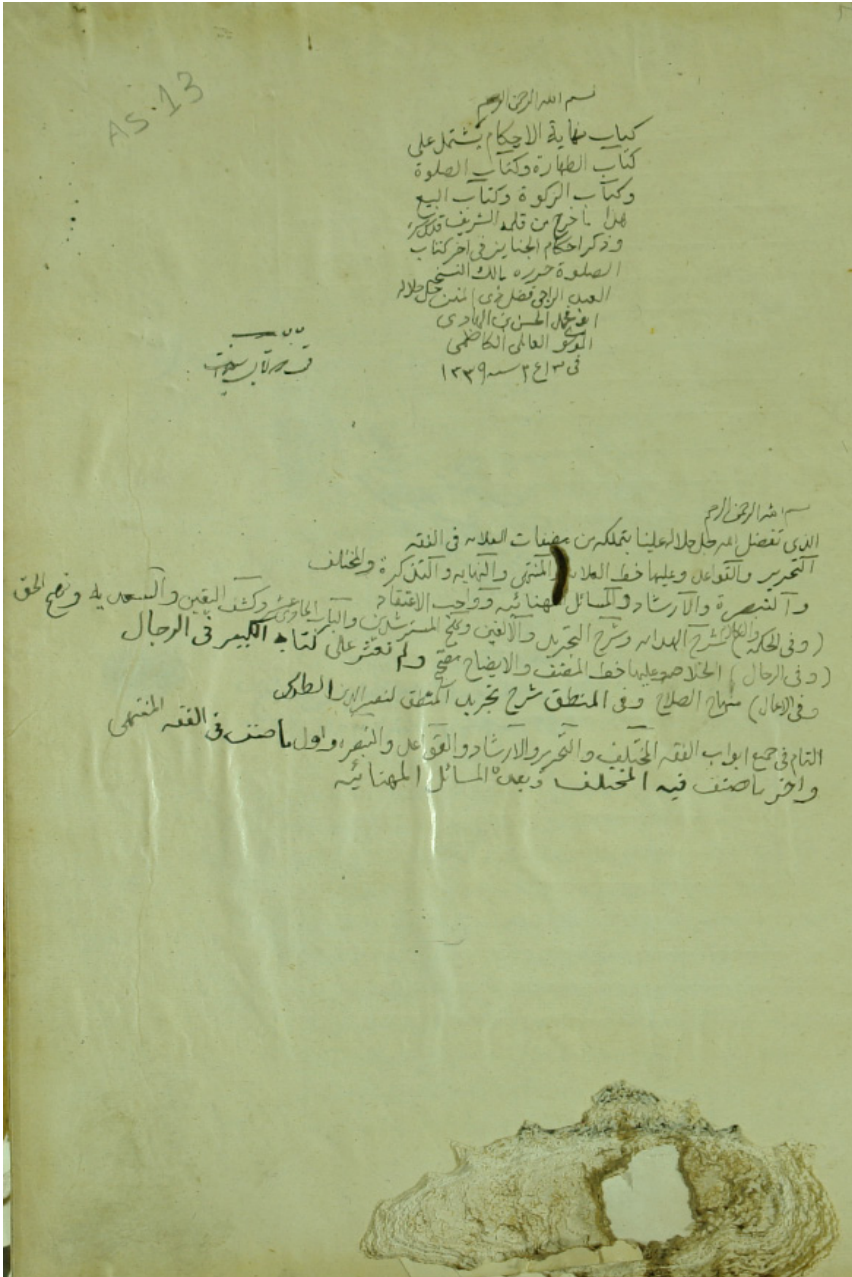 AS.13
بسم الله الرحمن الرحيم
كتاب نهاية الاحكام يشتمل على
كتاب الطهارة وكتاب الصلوة
وكتاب الزكوة وكتاب البيع
هذا ما خرج من قلمه الشريف قدس سره
وذكر احكام الجنايز في اخر كتاب
الصلوة حرره مالك النسخة
العبد الراجي فضل ذي المنن جل جلاله
ابو محمد الحسن بن الهادي
الموسوي العاملي الكاظمي
في ١٣ ع ٢ سنه ١٣٣٩
بسم الله الرحمن الرحيم
الذي تفضل الله جل جلاله علينا بتملكه من مصنفات العلامه في الفقه
التحرير والقواعد وعليها خط العلامه والمنتهى والنهايه والتذكرة والمختلف
والتبصرة والارشاد والمسائل المهنائيه وواجب الاعتقاد
(وفي الحكمة والكلام) شرح الهدايه وشرح التجريد والالفين ونهج المسترشدين والباب الحادي عشر وكشف اليقين والسعديه ونهج الحق
(وفي الرجال) الخلاصه وعليها خط المصنف والايضاح ولم نعثر على كتابه الكبير في الرجال
منهاج الصلاح وفي المنطق شرح تجريد المنطق لنصير الدين الطوسي
التام في جميع ابواب الفقه المختلف والتحرير والارشاد والقواعد والتبصره واول ما صنف في الفقه المنتهى
واخر ما صنف فيه المختلف وبعده المسائل المهنائيه